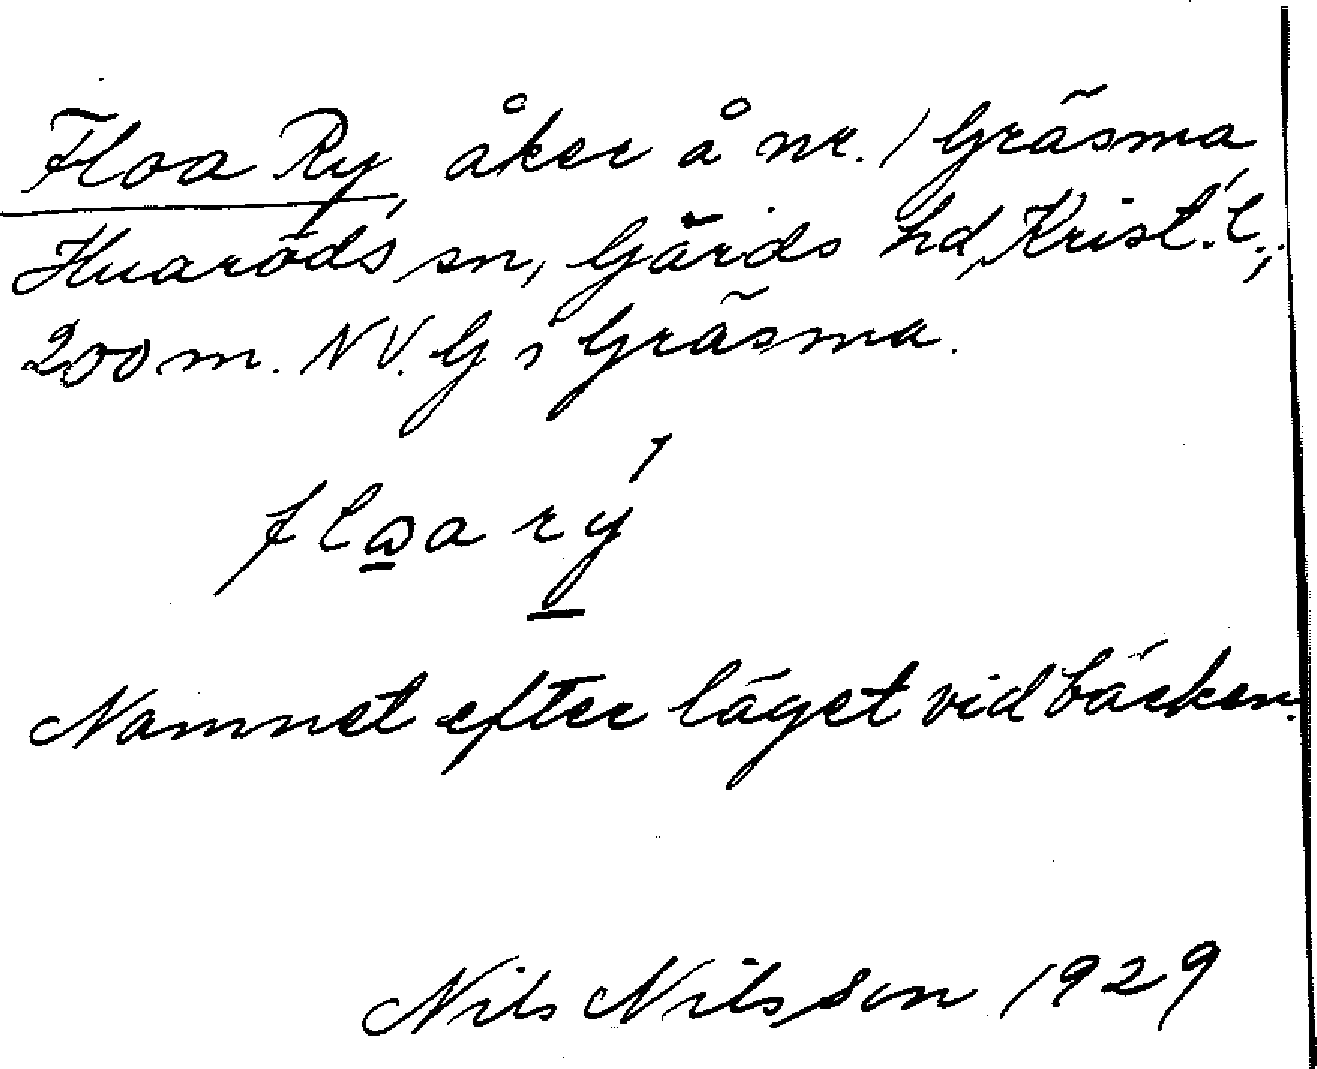 Floa Ry, åker å nr. 1 Gräsma
Huaröds sn, Gärds hd, Krist. l.;
200 m. N V. G i Gräsma.
flɷa rý
Namnet efter läget vid bäcken.
Nils Nilsson 1929